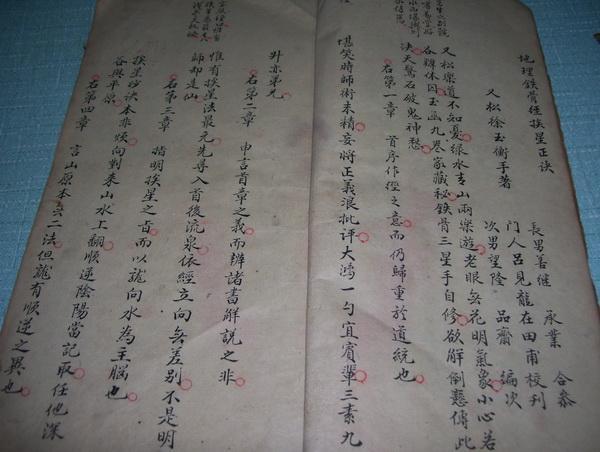 地理鉄骨經挨星正訣
又松徐玉衡手著
長男善継 承業 合叅
門人呂見龍在田甫校刋
次男望隆 品齋 編次
又松樂道不知憂綠水青山兩樂遊老眼無花明氣象小心若
各肆休囙玉函九卷家藏秘鉄骨三星手自修欲解倒懸傳此
決天驚石破鬼神愁
右第一章 首序作經之意而仍歸重於道統也
堪笑時師術未精妄將正義浪批评大鴻一勺宜賓輩三素九
舛亦第兄
右第二章 申言首章之義而辨諸書解説之非
惟有挨星法最元先導入首後流泉依經立向無差别不是明
師却是仙
右第三章 指明挨星之旨而以龍向水為主腦也
挨星妙訣本非煩向對来山水上翻順逆陰陽當記取任他深
谷與平原
右第四章 言山原本無二法但龍有順逆之異也